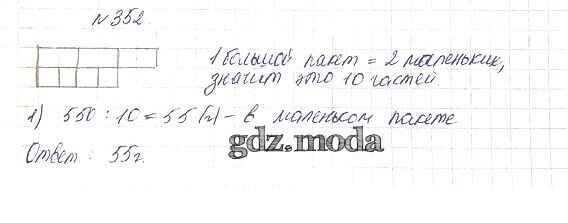 №352.
1 большой пакет = 2 маленьких,
значит это 10 частей.
1) 550 : 10 = 55 (г) - в маленьком пакете
gdz.moda
Ответ: 55г.